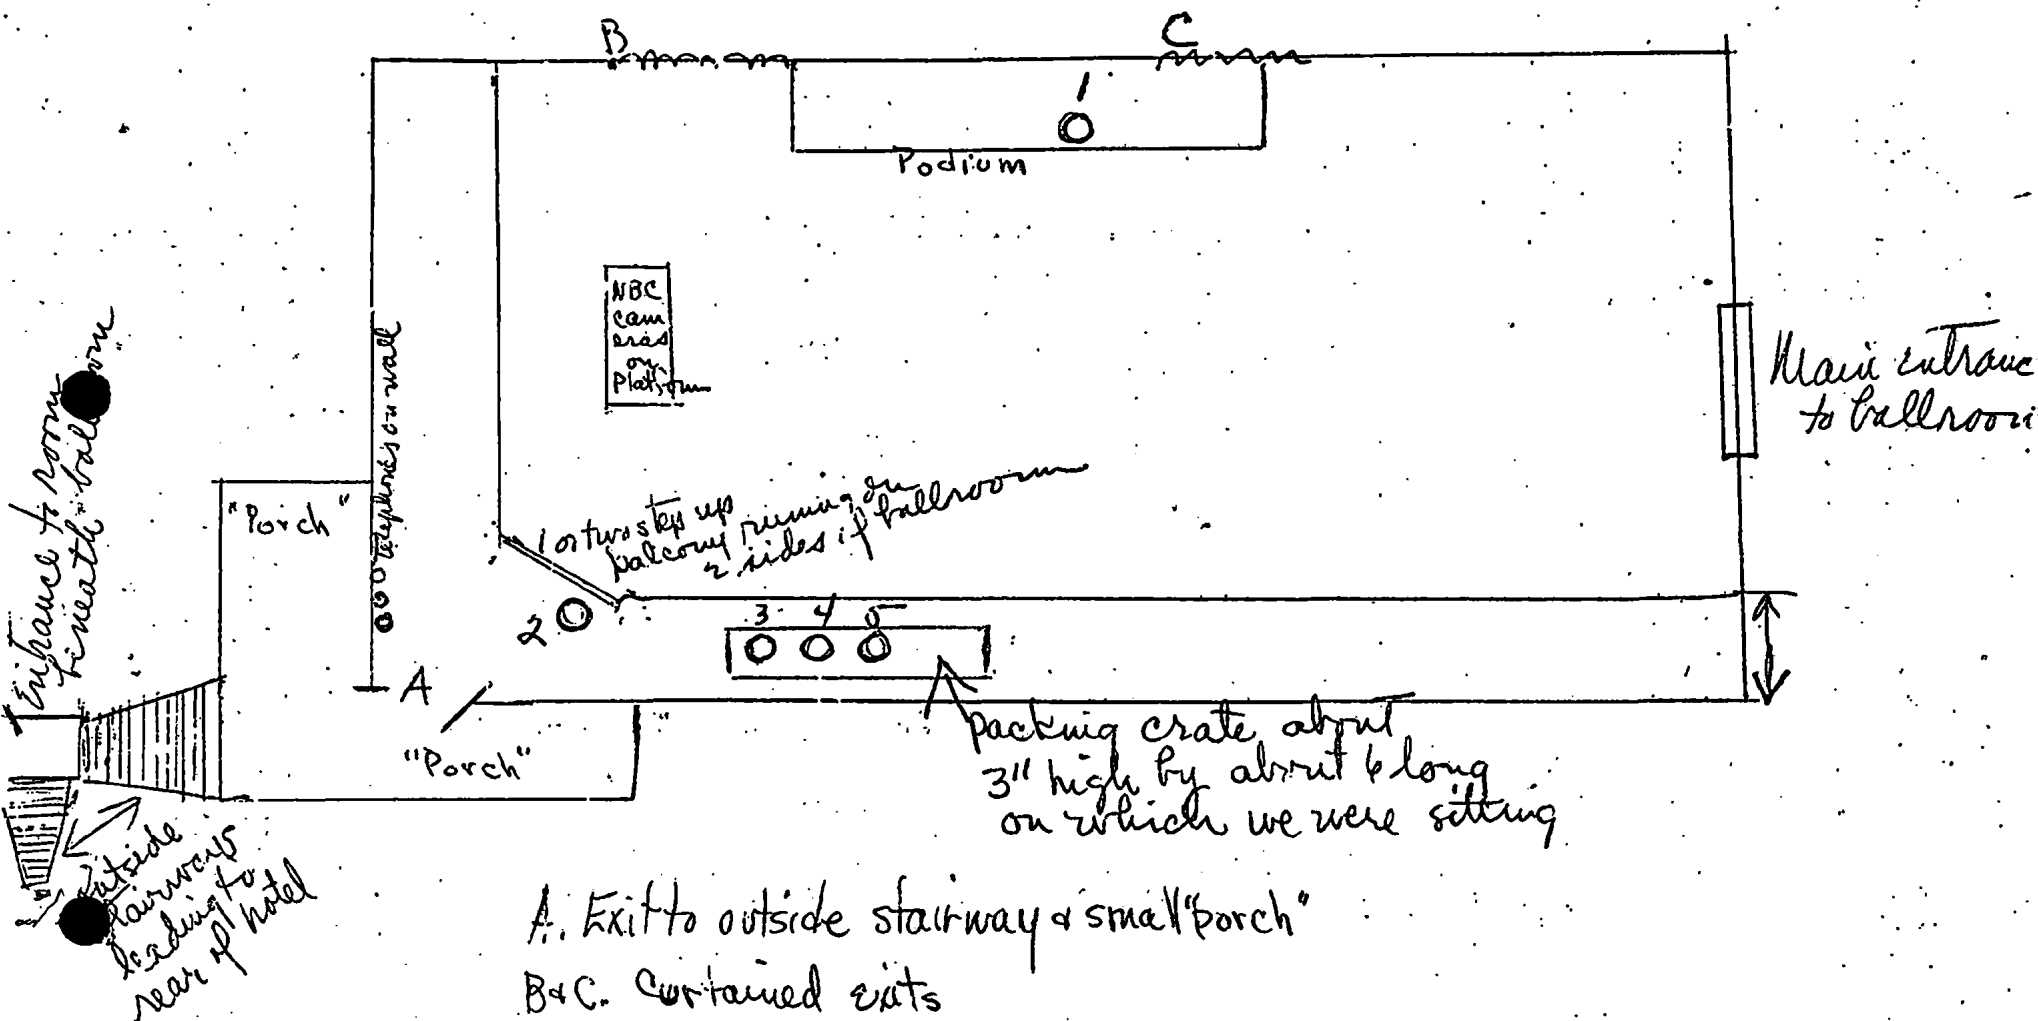 B
C
1
Podium
NBC
cam
eras
on
Platform
Main entranc
to ballroom
telephones on wall
Entrance to room
bineath ballroom
"Porch"
1 or two step up
balcony running on
2 sides of ballroom
2
3 4 5
A
"Porch"
packing crate about
3" high by about 6 long
on which we were sitting
outside
stairways
leading to
rear of hotel
A. Exit to outside stairway & small "porch"
B&C. Curtained exits